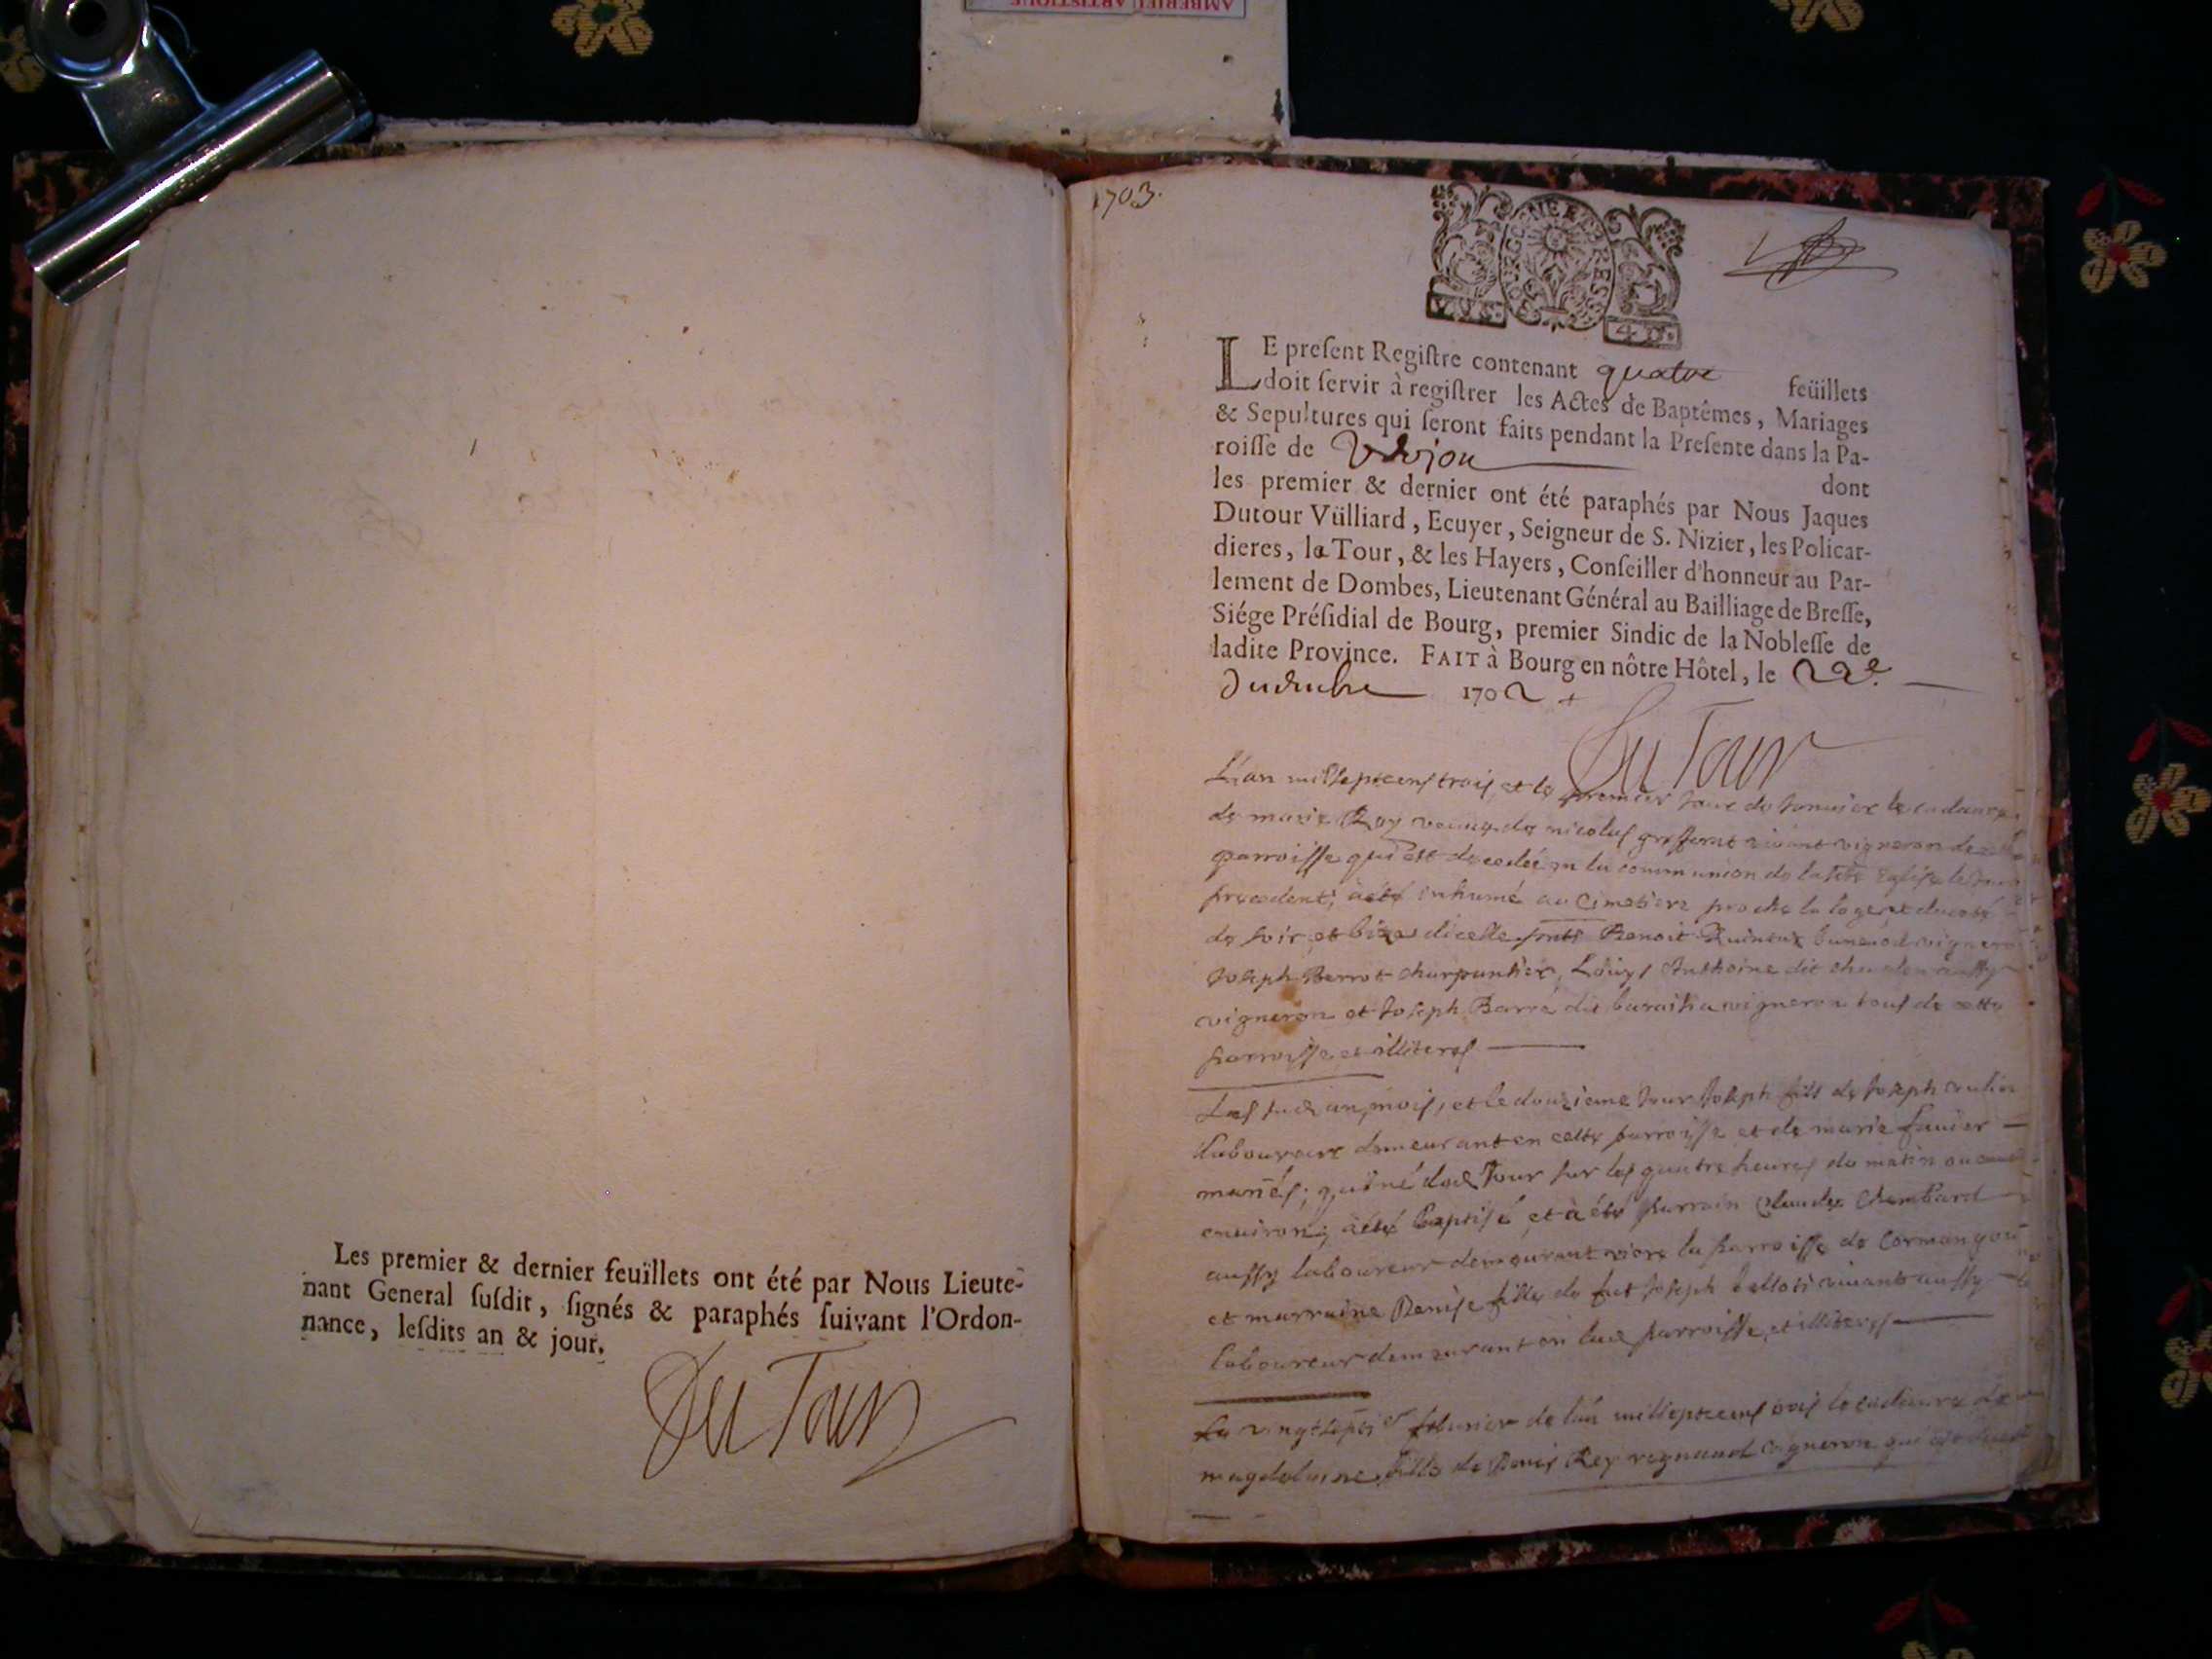 AMBERIEU ARTISTIQUE
Les premier & dernier feuïllets ont été par Nous Lieute-
nant General ſuſdit, ſignés & paraphés ſuivant l'Ordon-
nance, leſdits an & jour.
Du Tour
1703.
BOURGOGNE ET BRESSE
4 D.
LE preſent Regiſtre contenant quatre feüillets
doit ſervir à regiſtrer les Actes de Baptêmes, Mariages
& Sepultures qui ſeront faits pendant la Preſente dans la Pa-
roiſſe de dont
les premier & dernier ont été paraphés par Nous Jaques
Dutour Vülliard, Ecuyer, Seigneur de S. Nizier, les Policar-
dieres, la Tour, & les Hayers, Conſeiller d'honneur au Par-
lement de Dombes, Lieutenant Général au Bailliage de Breſſe,
Siége Préſidial de Bourg, premier Sindic de la Nobleſſe de
ladite Province. FAIT à Bourg en nôtre Hôtel, le 22e.
1702
Du Tour
L'an mil sept cens trois et le premier jour de janvier le cadavre
de marie Rey veuve de nicolas vivant vigneron de
parroisse qui est decedée en la communion de la ste Eglise le jour
precedent, à été inhumé au Cimetiere proche la loge et du coté
de soir et bize d'icelle pnts Benoit vigneron
Joseph Perrot charpentier, Louys Anthoine dit aussy
vigneron et Joseph Barre dit vigneron tous de cette
parroisse et illiteres
Les sud an, mois, et le douzieme jour Joseph fils de Joseph
laboureur demeurant en cette parroisse et de marie
mariés; qui est né led Jour sur les quatre heures du matin ou
environ; à été baptisé, et à été parrain Claude Chambard
aussy laboureur demeurant riere la parroisse de
et marraine Denise fille de fut Joseph vivant aussy
laboureur demeurant en lad parroisse, et illiteres
Le vingt sept fevrier de l'an mil sept cens trois le cadavre de
magdelaine fille de Denis Rey vigneron qui est